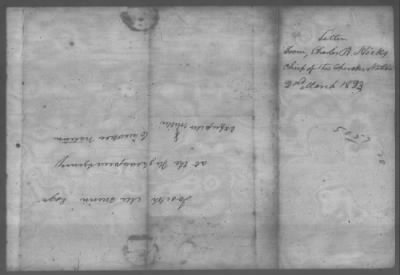 Letter
from, Charles R. Hicks
Chief of the Cherokee Nation
2nd March 1823
Joseph Mc Minn Esqr
at the Highwassee Agency
Cherokee Nation